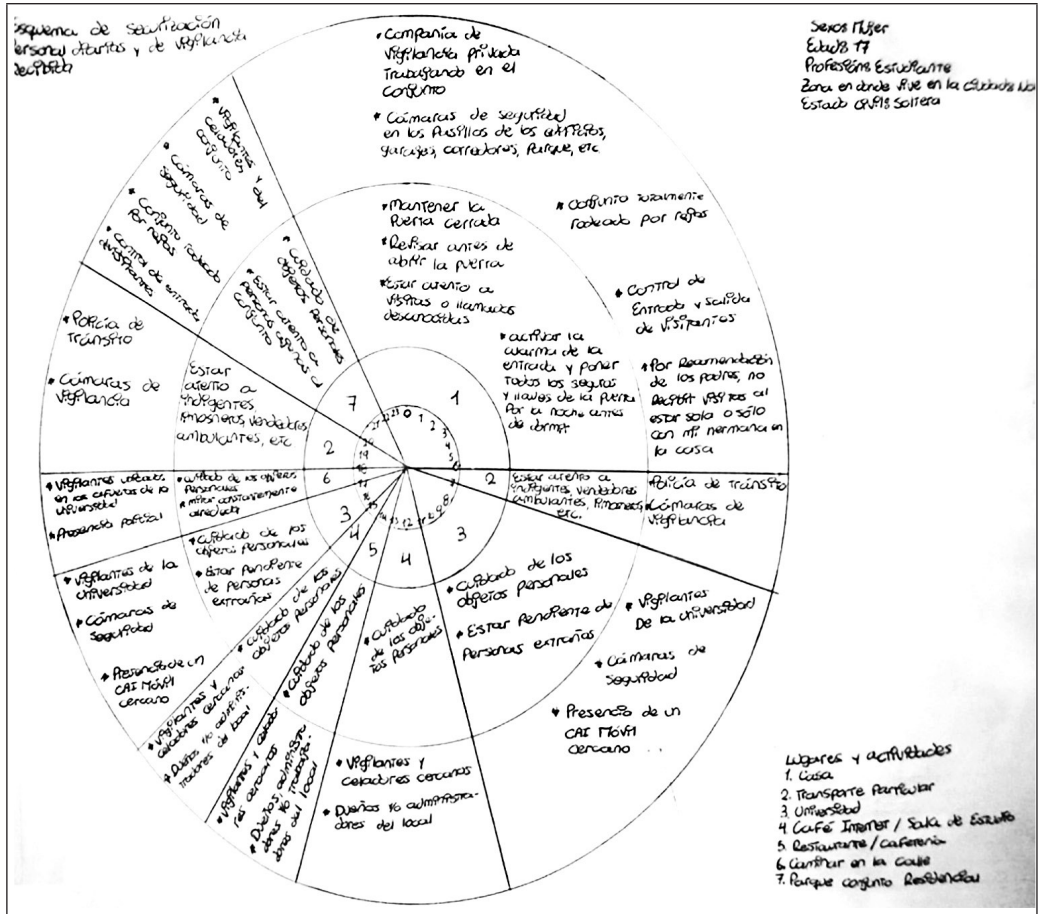 Esquema de securización
personal diarias y de vigilancia
recibida
Sexo: Mujer
Edad: 17
Profesión: Estudiante
Zona en donde vive en la ciudad:
Estado civil: Soltera
* Compañía de
vigilancia privada
trabajando en el
conjunto
* Cámaras de seguridad
en los pasillos de los edificios,
garajes, corredores, parque, etc
* Conjunto totalmente
rodeado por rejas
* Control de
Entrada y salida
de visitantes
* Por Recomendación
de los padres, no
recibir visitas al
estar sola o sólo
con mi hermana en
la casa
* Mantener la
puerta cerrada
* Revisar antes de
abrir la puerta
* Estar atento a
visitas o llamadas
desconocidas
* activar la
alarma de la
entrada y poner
todos los seguros
y llaves de la puerta
Por la noche antes
de dormir
1
0 1 2 3 4 5 6 7 8 9 10 11 12 13 14 15 16 17 18 19 20 21 22 23
2
Estar atento a
indigentes, vendedores
ambulantes, limosneros,
etc.
Policía de Tránsito
Cámaras de
vigilancia
3
* Cuidado de los
objetos personales
* Estar Pendiente de
Personas extrañas
* Vigilantes
De la universidad
* Cámaras de
Seguridad
* Presencia de un
CAI Móvil
cercano
4
* Cuidado
de los obje-
tos personales
* Vigilantes y
celadores cercanos
* Dueños y/o administra-
dores del local
5
* Cuidado de los
objetos personales
* Vigilantes y celado-
res cercanos
* Dueños, administra-
dores y/o trabaja-
dores del local
4
* Cuidado de los
objetos personales
* Vigilantes y
celadores cercanos
* Dueños y/o adminis-
tradores del local
3
* Cuidado de los
objetos personales
* Estar Pendiente
de personas
extrañas
* Vigilantes de la
universidad
* Cámaras de
seguridad
* Presencia de un
CAI Móvil
cercano
6
* Cuidado de los objetos
Personales
* mirar constantemente
alrededor
* Vigilantes ubicados
en las afueras de la
universidad
* Presencia policial
2
Estar
atento a
indigentes,
limosneros, vendedores
ambulantes, etc
* Policía de
Tránsito
* Cámaras de
vigilancia
7
* Cuidado de
objetos personales
* Estar atento a
personas ajenas al
conjunto
* Vigilantes y
celadores del
conjunto
* Cámaras de
seguridad
* Conjunto rodeado
por rejas
* Control de entrada
de visitantes
Lugares y actividades
1. Casa
2. Transporte Particular
3. Universidad
4 Café Internet / Sala de Estudio
5. Restaurante / cafetería
6. Caminar en la calle
7. Parque conjunto Residencial